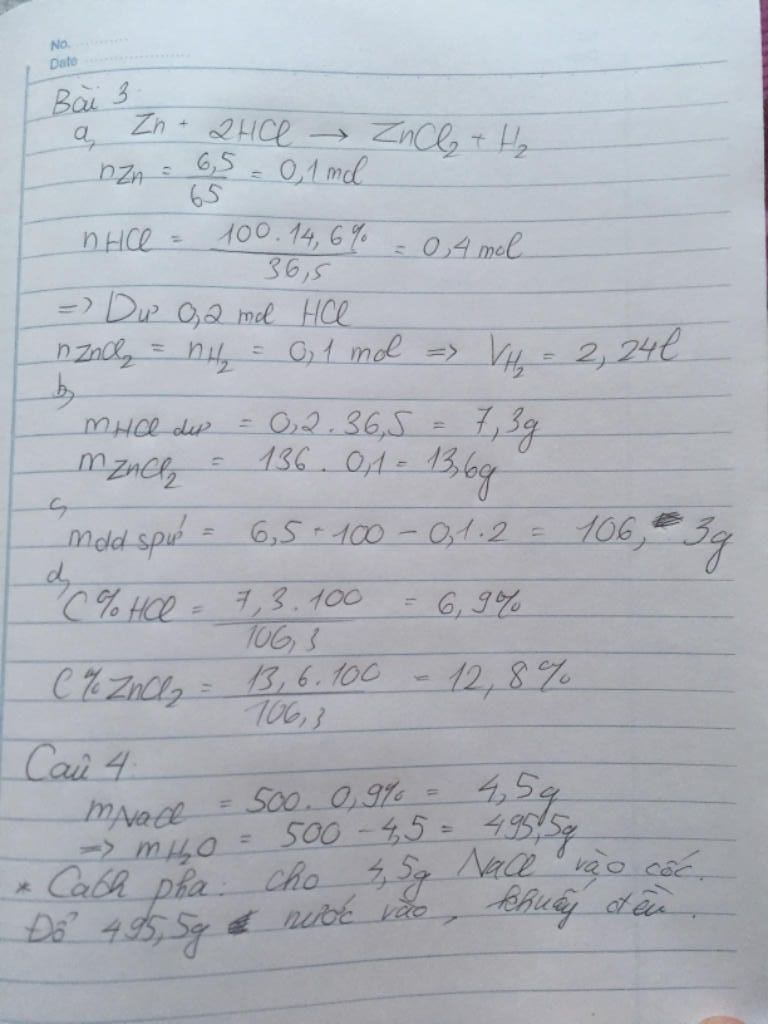 No.
Date
Bài 3
a, Zn + 2HCl → ZnCl2 + H2
nZn = 6,5/65 = 0,1 mol
nHCl = 100.14,6%/36,5 = 0,4 mol
=> Dư 0,2 mol HCl
nZnCl2 = nH2 = 0,1 mol => VH2 = 2,24l
b,
mHCl dư = 0,2.36,5 = 7,3g
mZnCl2 = 136.0,1 = 13,6g
c,
mdd spứ = 6,5 + 100 - 0,1.2 = 106,3g
d,
C%HCl = 7,3.100/106,3 = 6,9%
C%ZnCl2 = 13,6.100/106,3 = 12,8%
Câu 4
mNaCl = 500.0,9% = 4,5g
=> mH2O = 500 - 4,5 = 495,5g
* Cách pha: cho 4,5g NaCl vào cốc.
Đổ 495,5g nước vào, khuấy đều.